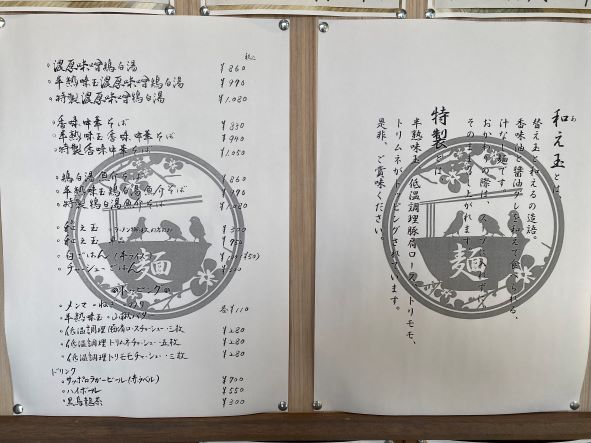 税込
・濃厚味噌鶏白湯 ¥860
・半熟味玉濃厚味噌鶏白湯 ¥990
・特製濃厚味噌鶏白湯 ¥1.080
・香味中華そば ¥830
・半熟味玉香味中華そば ¥940
・特製香味中華そば ¥1.050
・鶏白湯魚介そば ¥860
・半熟味玉鶏白湯魚介そば
・特製鶏白湯魚介そば ¥1.080
・和え玉
・和え玉
・白ごはん
・チャーシューごはん
のトッピングの
・メンマ ・ねぎ ・のり
・半熟味玉 各¥110
・低温調理豚肩ロースチャーシュー・三枚 ¥280
・低温調理トリムネチャーシュー・五枚 ¥280
・低温調理トリモモチャーシュー・三枚 ¥280
ドリンク
・サッポロラガービール(赤ラベル) ¥700
・ハイボール ¥550
・黒烏龍茶 ¥300
麺
和え玉とは、
替え玉と和えるの造語。
香味油と醤油ダレを和えて食べられる、
汁なし麺です。
おかわりの際は、スープへ入れずに
そのまま召し上がれます。
特製とは
半熟味玉、低温調理豚肩ロース、トリモモ、
トリムネがトッピングされています。
是非、ご賞味ください。
麺